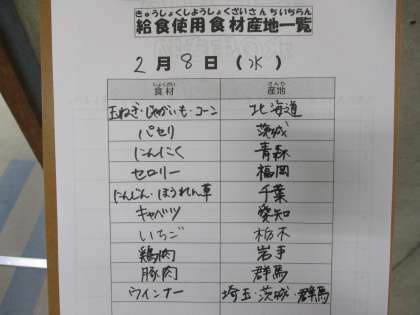 きゅうしょくしようしょくざいさんちいちらん
給食使用食材産地一覧
2月8日(水)
しょくざい さんち
食材 産地
玉ねぎ・じゃがいも・コーン 北海道
パセリ 茨城
にんにく 青森
セロリー 福岡
にんじん・ほうれん草 千葉
キャベツ 愛知
いちご 栃木
鶏肉 岩手
豚肉 群馬
ウインナー 埼玉・茨城・群馬